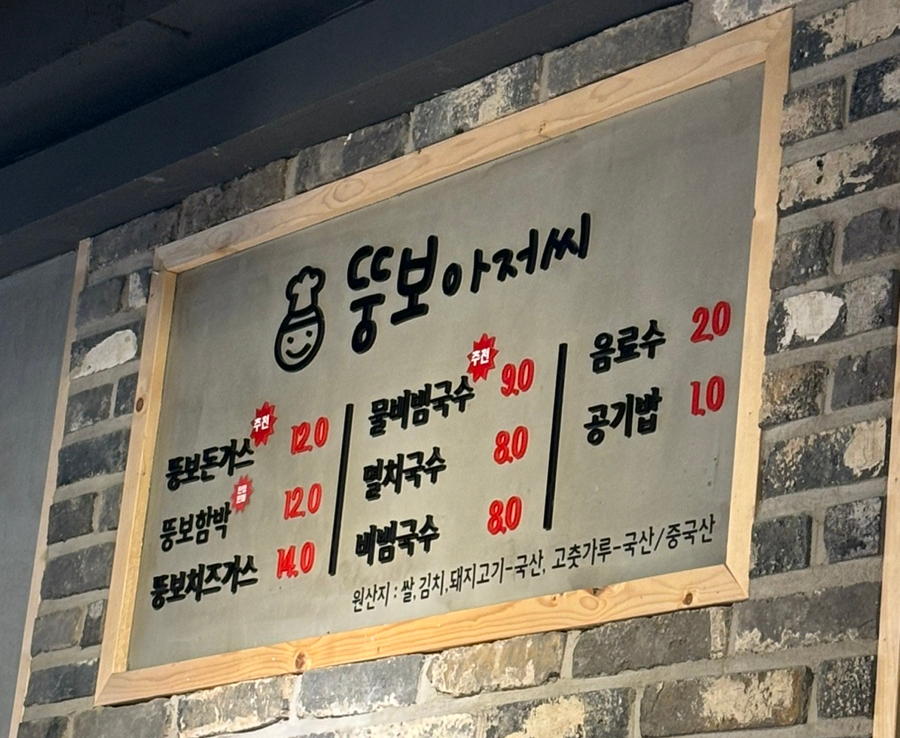 뚱보아저씨
추천
뚱보돈가스 12.0
뚱보함박 12.0
뚱보치즈가스 14.0
추천
물비빔국수 9.0
멸치국수 8.0
비빔국수 8.0
음료수 2.0
공기밥 1.0
원산지 : 쌀,김치,돼지고기-국산, 고춧가루-국산/중국산